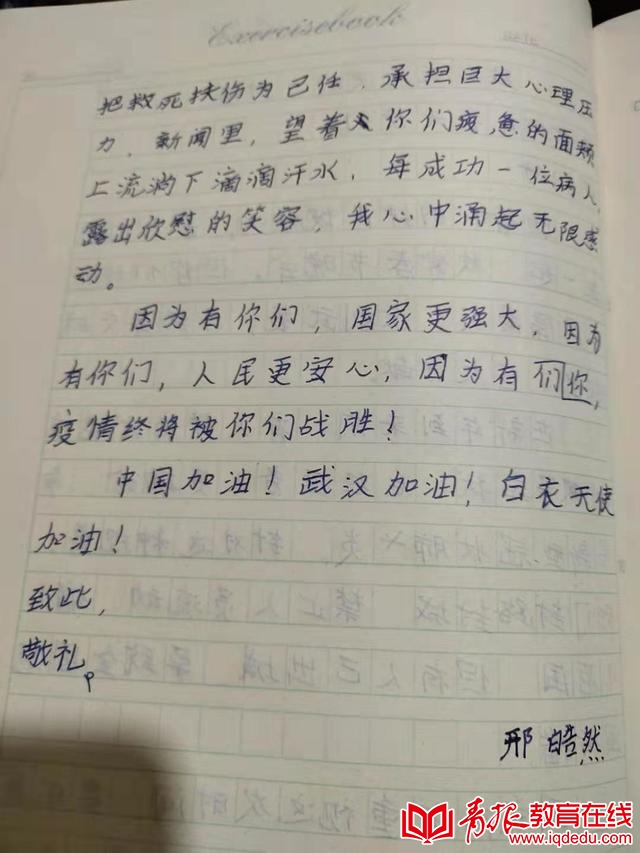 Exercisebook
DATE
把救死扶伤为己任，承担巨大心理压
力，新闻里，望着你们疲惫的面颊
上流淌下滴滴汗水，每成功一位病人，
露出欣慰的笑容，我心中涌起无限感
动。
因为有你们，国家更强大，因为
有你们，人民更安心，因为有们你，
疫情终将被你们战胜！
中国加油！武汉加油！白衣天使
加油！
致此，
敬礼。
邢皓然
青报教育在线
www.iqdedu.com